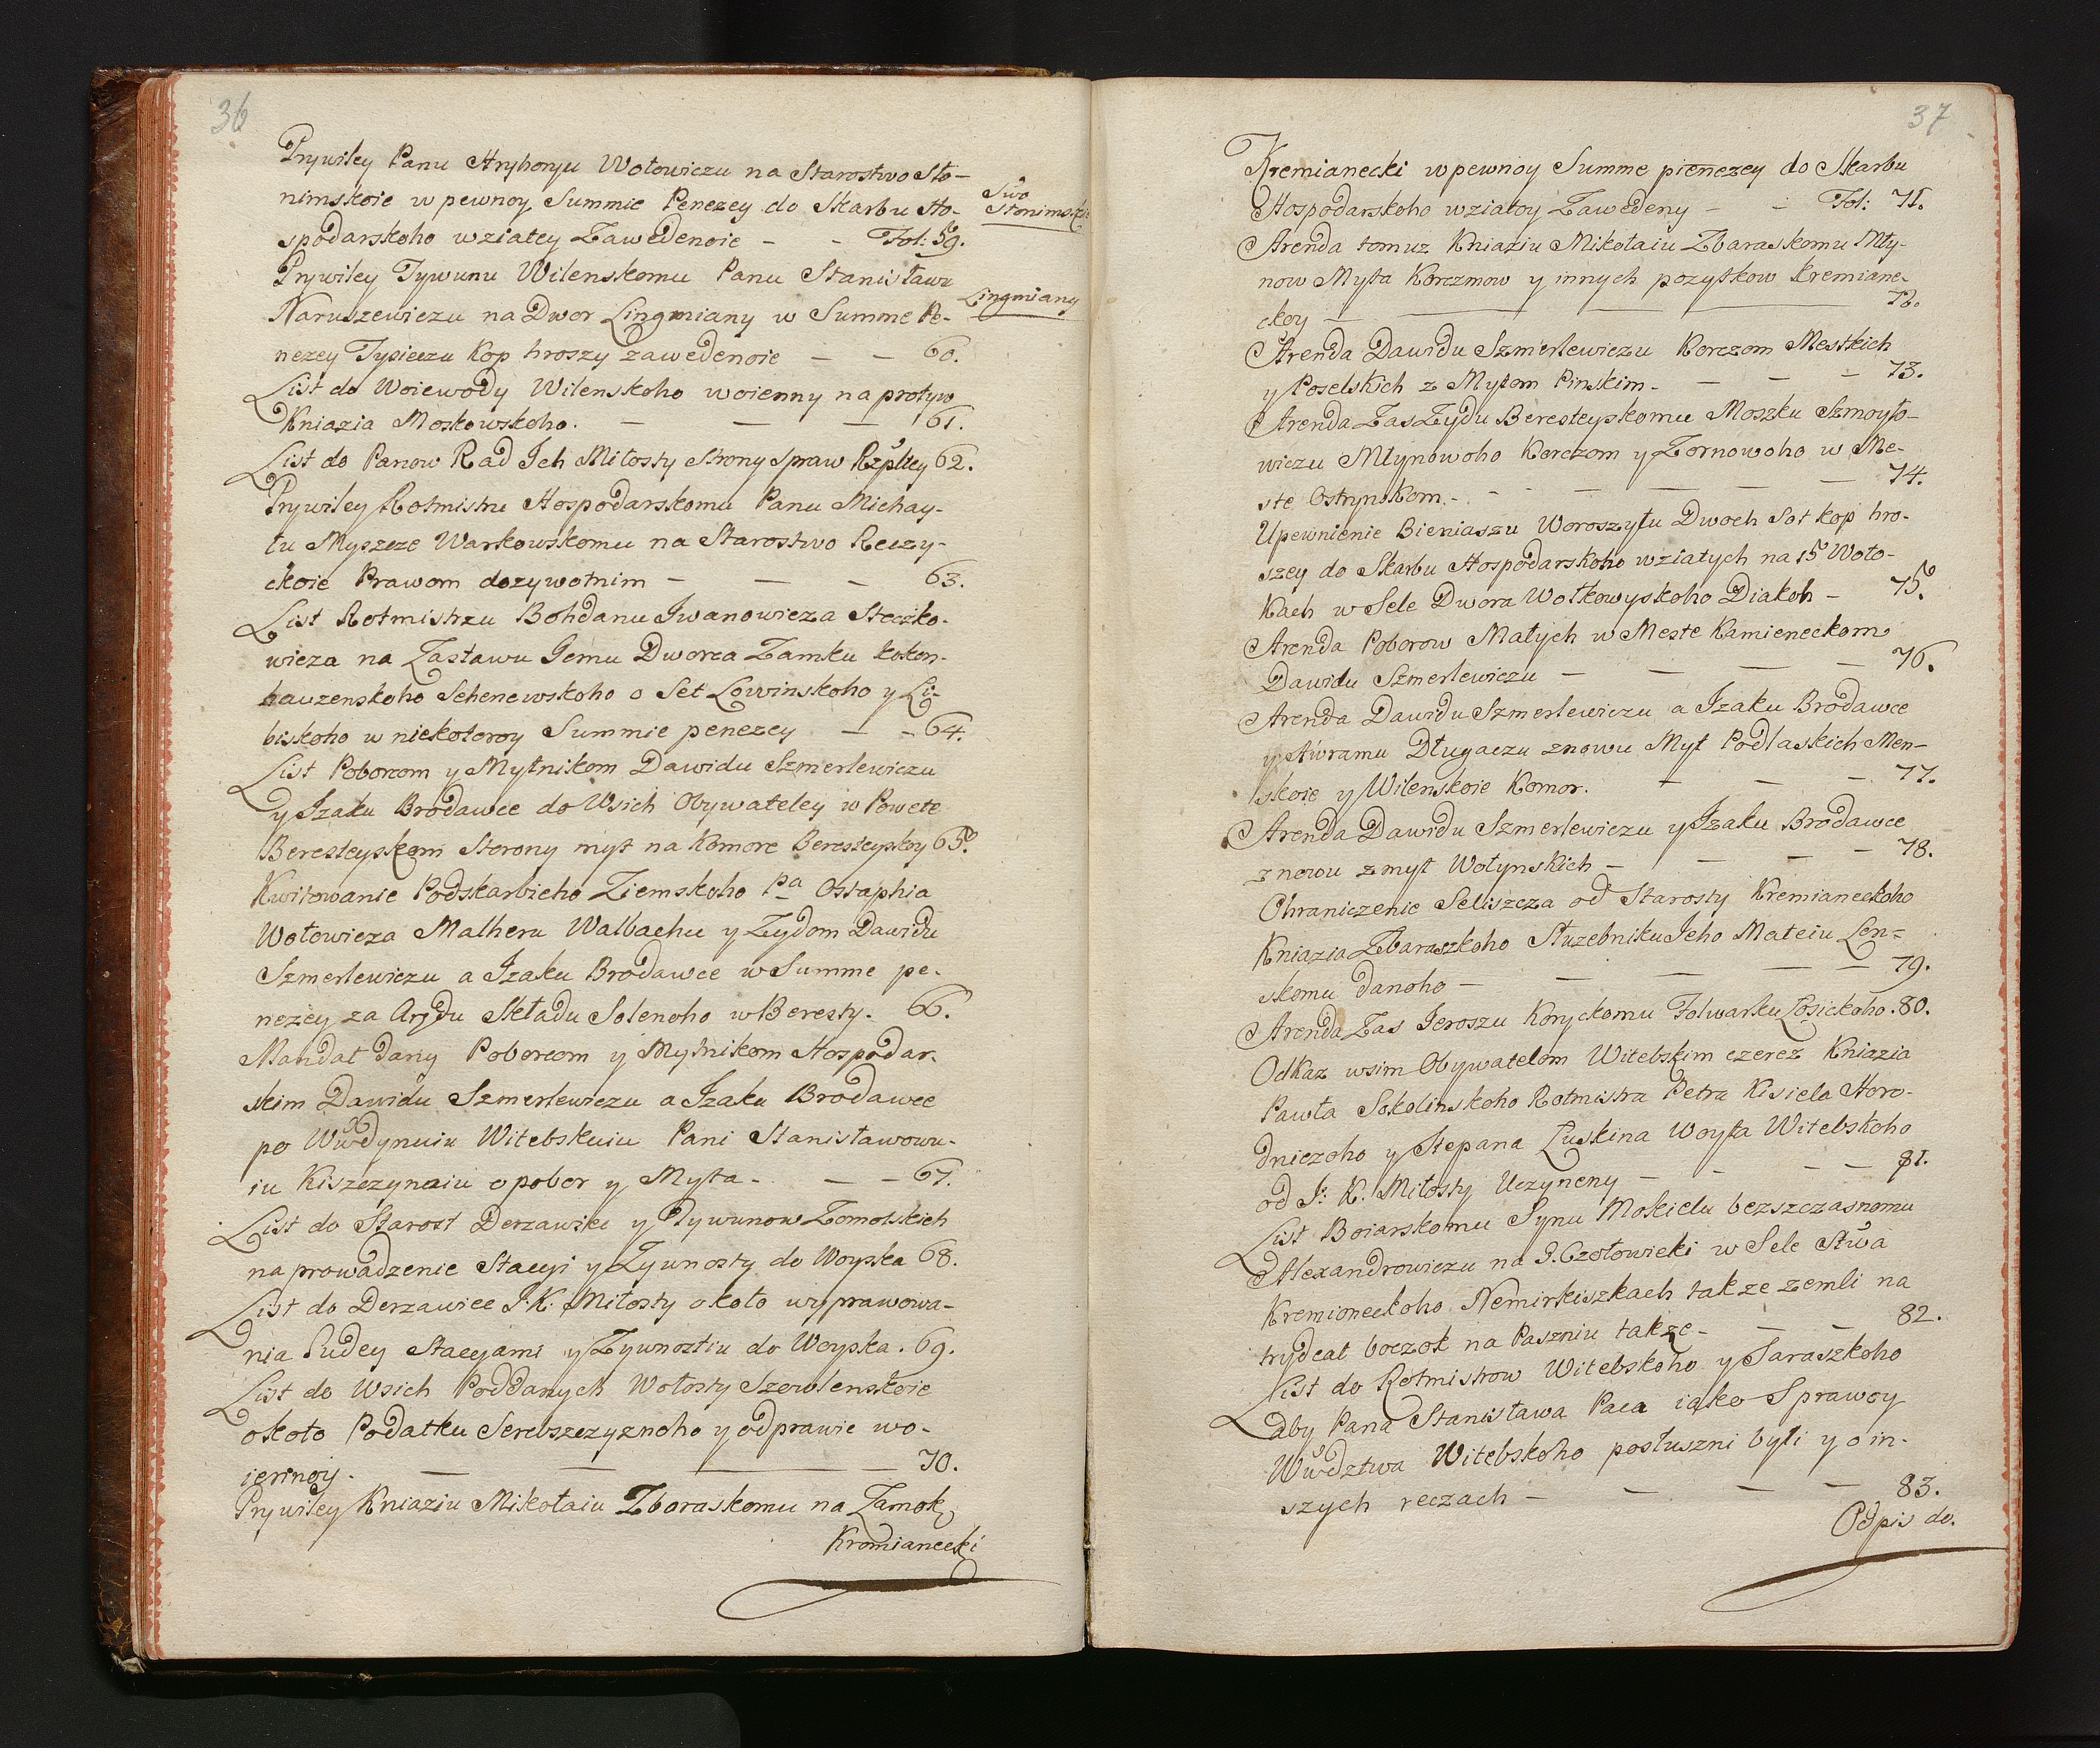 36
Prywiley Panu Hryhoryu Wołowiczu na Starostwo Sło-
nimskoie w pewnoy Summie Penezey do Skarbu Ho-
Stwo Słonimskie
spodarskoho wziatey Zawedenoie - - Fol: 59.
Prywiley Tywunu Wilenskomu Panu Stanisławu
Lingmiany
Naruszewiczu na Dwor Lingmiany w Summe Pe-
nezey Tysieczu Kop hroszy zawedenoie - - 60.
List do Woiewody Wilenskoho woienny na protyw
Kniazia Moskowskoho. - - - 61.
List do Panow Rad Ich Miłosty Strony Spraw Rzpltey 62.
Prywiley Rotmistru Hospodarskomu Panu Michay-
łu Myszcze Warkowskomu na Starostwo Reczy-
ckoie Prawom dozywotnim - - - 63.
List Rotmistrzu Bohdanu Iwanowicza Steczko-
wicza na Zastawu Iemu Dworca Zamku Kokon-
hauzenskoho Sehenewskoho o Set Lowinskoho y Li-
biskoho w niekotoroy Summie penezey - - 64.
List Poborcom y Mytnikom Dawidu Szmerlewiczu
y Izaku Brodawce do Wsich Obywateley w Powete
Beresteyskom Storony myt na Komore Beresteyskoy 65.
Kwitowanie Podskarbieho Ziemskoho Pa Ostaphia
Wołowicza Malheru Walbachu y Zydom Dawidu
Szmerlewiczu a Izaku Brodawce w Summe pe-
nezey za Arędu Składu Solenoho w Beresty. 66.
Mandat dany Poborcom y Mytnikom Hospodar-
skim Dawidu Szmerlewiczu a Izaku Brodawce
po Wwdynuiu Witebskuiu Pani Stanisławowu-
iu Kiszczynaiu o pobor y Myta - - - 67.
List do Starost Derzawice y Tywunow Zomotskich
na prowadzenie Stacyi y Zywnosty do Woyska 68.
List do Derzawiec J. K. Miłosty około wyprawowa-
nia Ludey Stacyami y Zywnostiu do Woyska. 69.
List do Wsich Poddanych Wołosty Szowlenskoie
około Podatku Serebszczyznoho y odprawie wo-
iennoy. - - - - 70.
Prywiley Kniaziu Mikołaiu Zboraskomu na Zamok
Kromianecki
37
Kremianecki w pewnoy Summe pienezey do Skarbu
Hospodarskoho wziatoy Zawedeny - - Fol: 71.
Arenda tomuz Kniaziu Mikołaiu Zbaraskomu Mły-
now Myta Korczmow y innych pozytkow Kremiane-
ckoy - - - - 72.
Arenda Dawidu Szmerlewiczu Korczom Mestkich
y Poselskich z Mytom Pinskim - - - - 73.
Arenda Zas Zydu Beresteyskomu Moszku Szmoyło-
wiczu Młynowoho Korczom y Zornowoho w Me-
ste Ostrynskom. - - - - - 74.
Upewnienie Bieniaszu Woroszyłu Dwoch Sot kop hro-
szey do Skarbu Hospodarskoho wziatych na 15 Woło-
kach w Sele Dwora Wołkowyskoho Diakoh - 75.
Arenda Poborow Małych w Meste Kamieneckom
Dawidu Szmerlewiczu - - - - 76.
Arenda Dawidu Szmerlewiczu a Izaku Brodawce
y Awramu Długaczu znowu Myt Podlaskich Men-
skoie y Wilenskoie Komor. - - - 77.
Arenda Dawidu Szmerlewiczu y Izaku Brodawce
znowu z myt Wołynskich - - - - 78.
Ohraniczenie Seliszcza od Starosty Kremianeckoho
Kniazia Zbaraszkoho Słuzebniku Jeho Mateiu Len-
skomu danoho - - - - - 79.
Arenda Zas Jeroszu Koryckomu Folwarku Łosickoho. 80.
Odkaz wsim Obywatelom Witebskim czerez Kniazia
Pawła Sokolinskoho Rotmistra Petra Kisiela Horo-
dniczoho y Stepana Łuskina Woyta Witebskoho
od J: K: Miłosty Uczyneny - - - - 81.
List Boiarskomu Synu Mokielu bezszczasnomu
Alexandrowiczu na 9. Czołowieki w Sele Stwa
Kremioneckoho Nemirkiszkach takze zemli na
trydcat boczok na Paszniu takze - - - 82.
List do Rotmistrow Witebskoho y Saraszkoho
aby Pana Stanisława Paca iako Sprawcy
Wwdztwa Witebskoho posłuszni byli y o in-
szych reczach - - - - 83.
Odpis do.